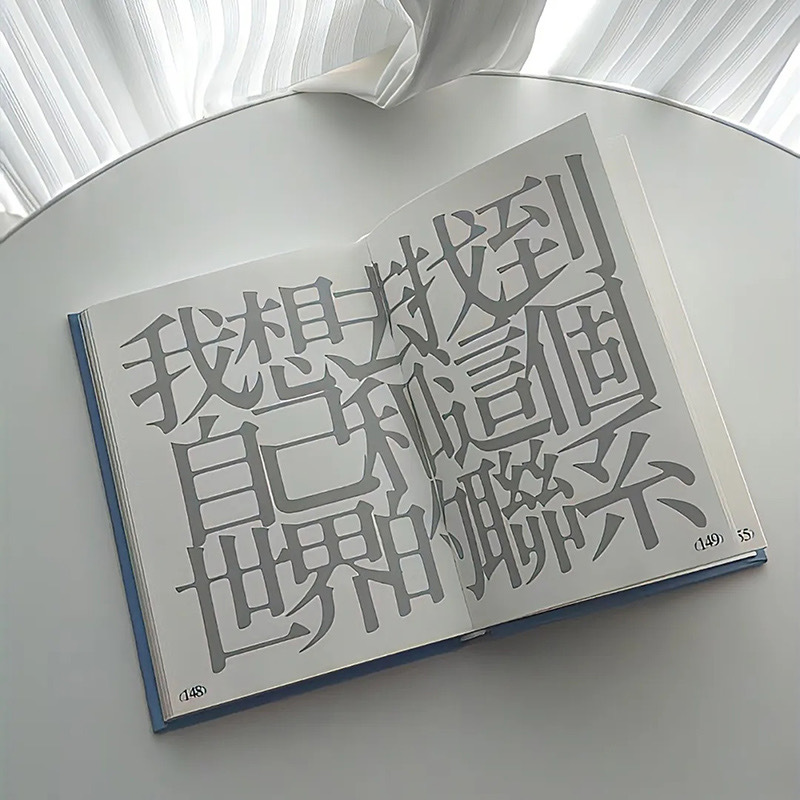 我想去找到
自己和這個
世界的聯系
(148)
(149)
55)